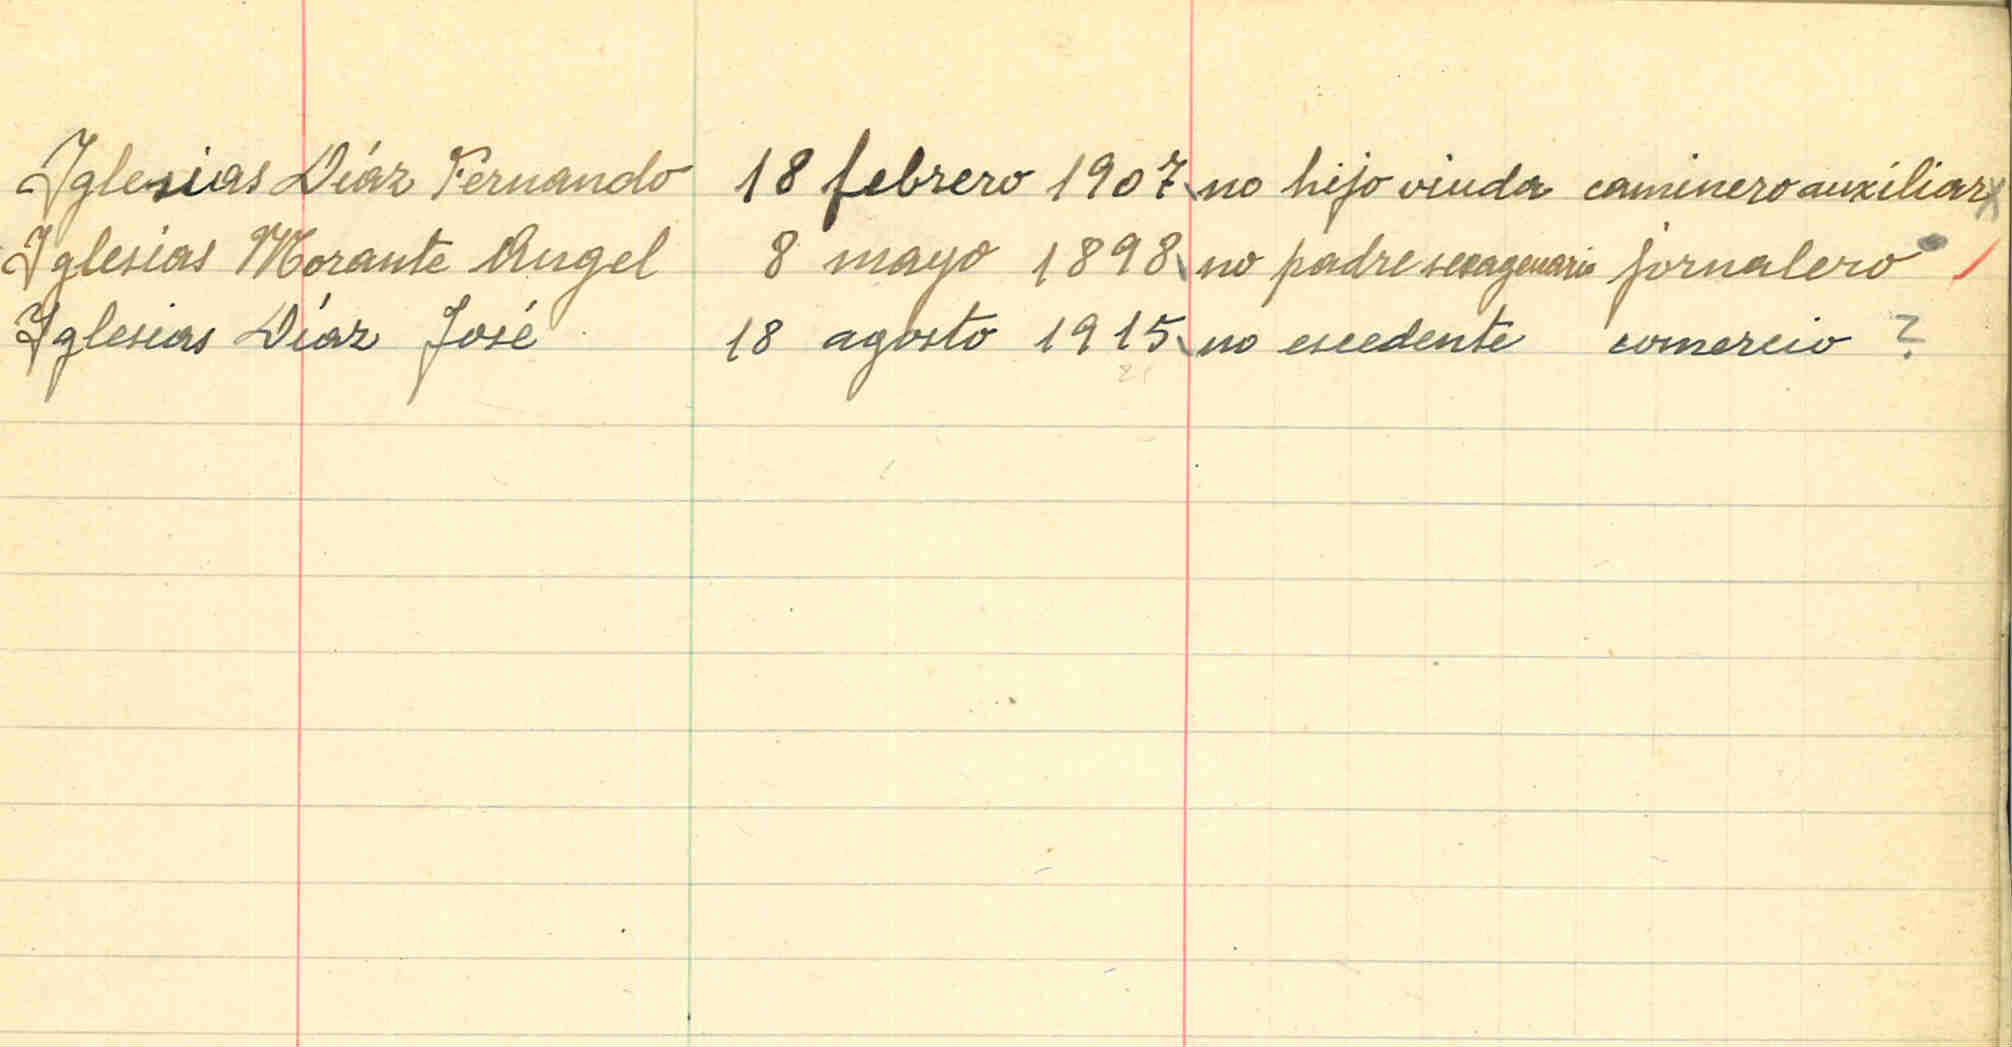 Iglesias Díaz Fernando 18 febrero 1907 no hijo viuda caminero auxiliar x
Iglesias Morante Angel 8 mayo 1898 no padre sexagenario jornalero
Iglesias Díaz José 18 agosto 1915 no escedente comercio ?